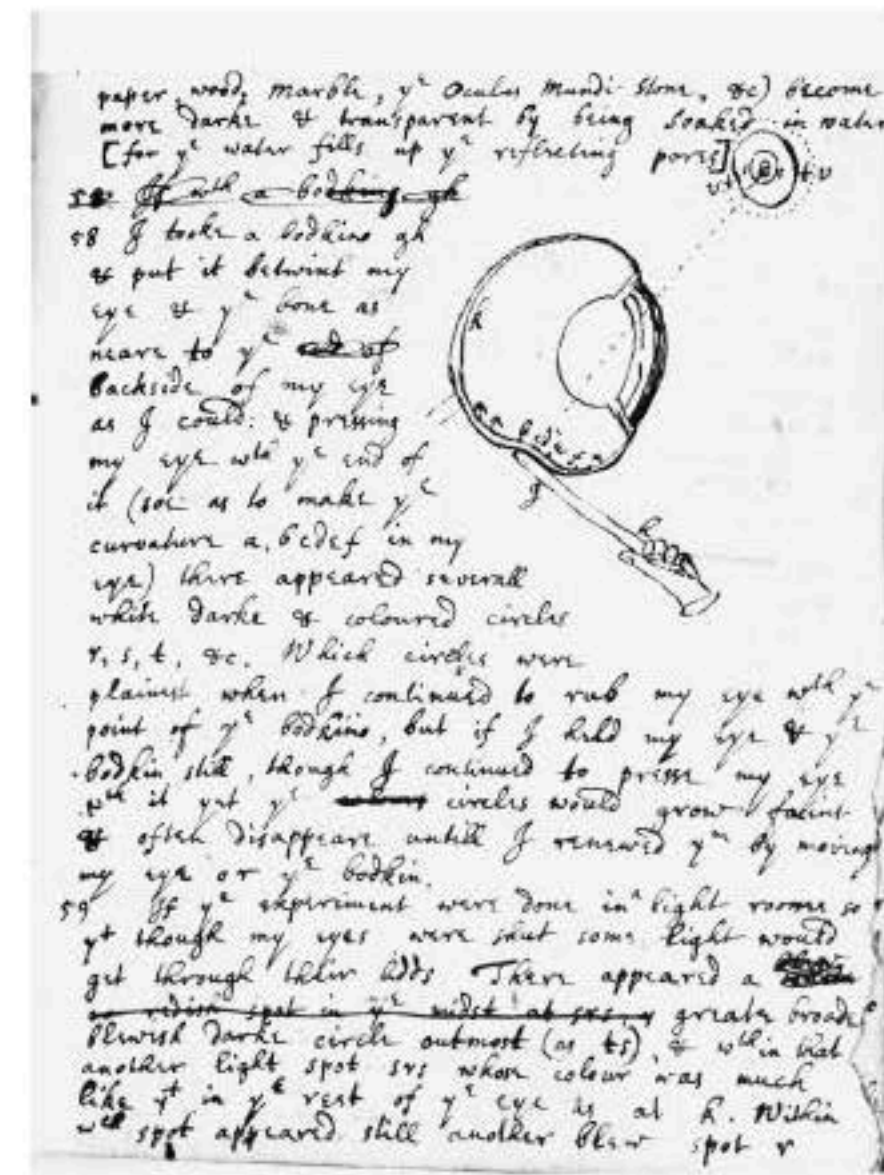 paper, wood, marble, yᵉ Oculus Mundi stone, &c) become
more darke & transparent by being soaked in water
[for yᵉ water fills up yᵉ reflecting pores]
58 If wᵗʰ a bodkine gh
58 I tooke a bodkine gh
& put it betwixt my
eye & yᵉ bone as
neare to yᵉ
backside of my eye
as I could: & pressing
my eye wᵗʰ yᵉ end of
it (soe as to make yᵉ
curvature a, bcdef in my
eye) there appeared severall
white darke & coloured circles
r, s, t, &c. Which circles were
plainest when I continued to rub my eye wᵗʰ yᵉ
point of yᵉ bodkine, but if I held my eye & yᵉ
bodkin still, though I continued to presse my eye
wᵗʰ it yet yᵉ circles would grow faint
& often disappeare untill I renewed yᵐ by moving
my eye or yᵉ bodkin.
59 If yᵉ experiment were done in a light roome so
yᵗ though my eyes were shut some light would
get through their lidds There appeared a
redish spot in yᵉ midst at srs, greate broade
blewish darke circle outmost (as ts), & wᵗʰin that
another light spot srs whose colour was much
like yᵗ in yᵉ rest of yᵉ eye as at k. Within
wᶜʰ spot appeared still another blew spot r
k
g
h